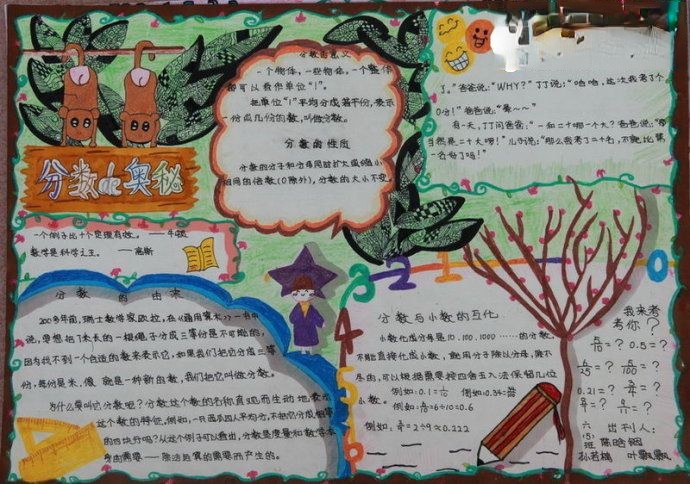 分数的奥秘
分数的意义
一个物体，一些物体，一个整体
都可以看作单位“1”。
把单位“1”平均分成若干份，表示
一份或几份的数，叫做分数。
分数的性质
分数的分子和分母同时扩大或缩小
相同的倍数(0除外)，分数的大小不变。
了。”爸爸说：“WHY？”丁丁说：“哈哈，这次我考了个
0分！”爸爸说：“晕～～”
有一天，丁丁问爸爸：“一和二十哪一个大？爸爸说：“
当然是二十大啰！”儿子说：“那么我考了二十名，不就比第
一名好了吗！”
一个例子比十个定理有效。——牛顿
数学是科学之王。——高斯
分数的由来
200多年前，瑞士数学家欧拉，在《通用算术》一书中
说，要想把7米长的一根绳子分成三等份是不可能的，
因为找不到一个合适的数来表示它，如果我们把它分成三等
份，每份是 米，像 就是一种新的数，我们把它叫做分数。
为什么要叫它分数呢？分数这个数的名称直观而生动地表示
这个数的特征。例如，一只西瓜四人平均分，不把它分成相等
的四块分吗？从这个例子可以看出，分数是度量和数学本
身的需要——除法运算的需要而产生的。
3 2 1 0
4
5
6
分数与小数的互化
小数化成分母是10、100、1000……的分数。
不能直接化成小数，能用分子除以分母，除不
尽的，可以根据需要按四舍五入法保留几位
小数。
例如：0.1=1/10 例如：0.34=
例如：6/10=6÷10=0.6
例如：2/9=2÷9≈0.222
我来考
考你？
0.5=？
0.21=？
六
(5)
班
出刊人：